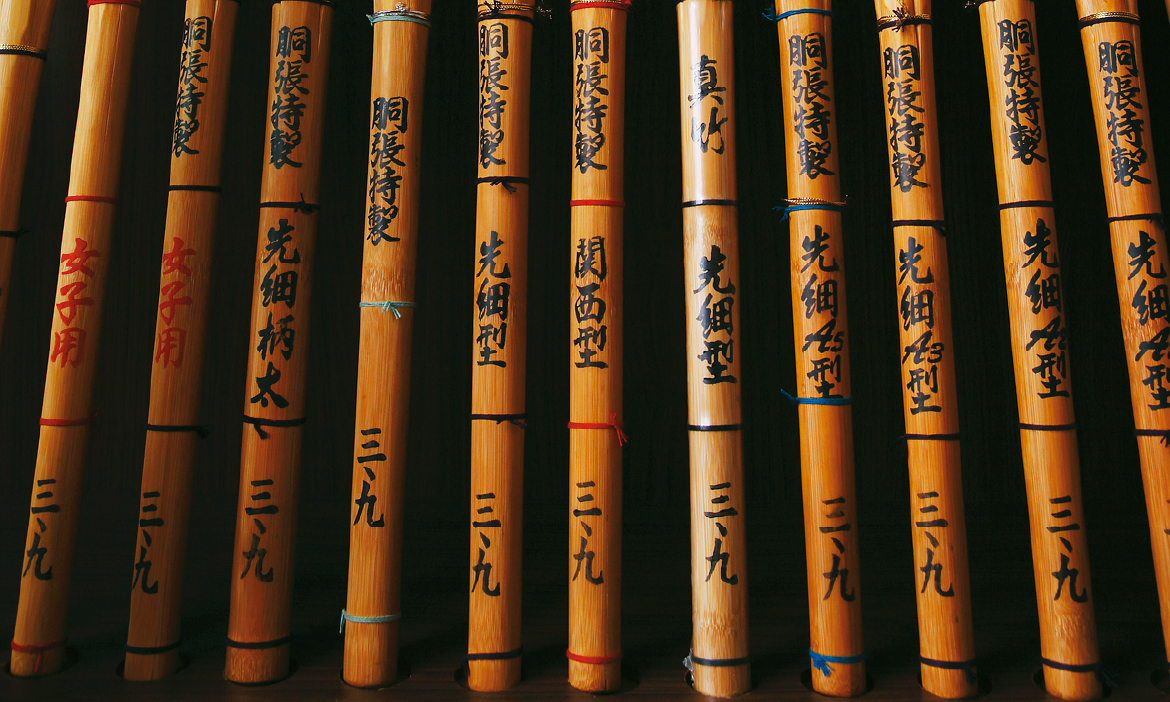 女子用
三、九
胴張特製
女子用
三、九
胴張特製
先細柄太
三、九
胴張特製
三、九
胴張特製
先細型
三、九
胴張特製
関西型
三、九
真竹
先細型
三、九
胴張特製
先細A5型
三、九
胴張特製
先細A3型
三、九
胴張特製
先細型
三、九
胴張特製
先細型